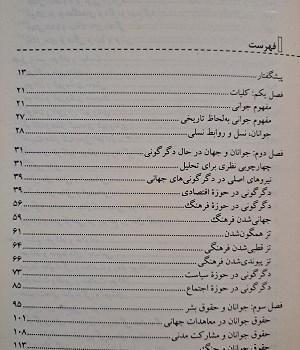 فهرست
پیشگفتار ........ ۱۳
فصل یکم: کلیات ........ ۲۱
مفهوم جوانی ........ ۲۱
مفهوم جوانی به‌لحاظ تاریخی ........ ۲۷
جوانان، نسل و روابط نسلی ........ ۲۸
فصل دوم: جوانان و جهان در حال دگرگونی ........ ۳۱
چهارچوبی نظری برای تحلیل ........ ۳۱
نیروهای اصلی در دگرگونی‌های جهانی ........ ۳۹
دگرگونی در حوزهٔ اقتصادی ........ ۳۹
دگرگونی در حوزهٔ فرهنگ ........ ۵۶
جهانی‌شدن فرهنگ ........ ۵۹
تز همگون‌شدن ........ ۶۱
تز قطبی‌شدن فرهنگی ........ ۶۴
تز پیوندی‌شدن فرهنگی ........ ۶۶
دگرگونی در حوزهٔ سیاست ........ ۷۳
دگرگونی در حوزهٔ اجتماع ........ ۸۵
فصل سوم: جوانان و حقوق بشر ........ ۹۵
حقوق جوانان در معاهدات جهانی ........ ۱۰۱
حقوق جوانان و مشارکت مدنی ........ ۱۰۸
حقوق جوانان و جنگ ........ ۱۱۳